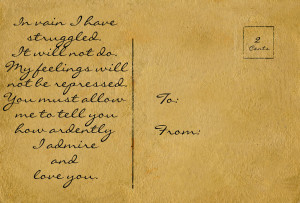 In vain I have
struggled.
It will not do.
My feelings will
not be repressed.
You must allow
me to tell you
how ardently
I admire
and
love you.
2
Cents
To:
From: